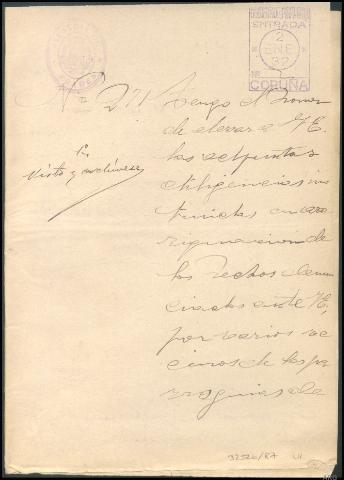 ENTRADA
2
ENE
32
Nº
CORUÑA
Nº 271 Tengo el honor
de elevar a V.E.
las adjuntas
diligencias ins
truidas en ave
riguación de
los hechos denun
ciados ante V.E,
por varios ve
cinos de las pa
rroquias de
Visto y archívese
32526/87